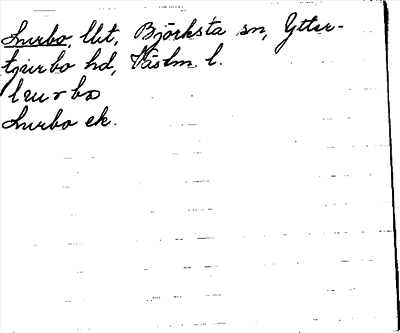 Lurbo, lht, Björksta sn, Ytter-
tjurbo hd, Västm. l.
lurbo
Lurbo ek.